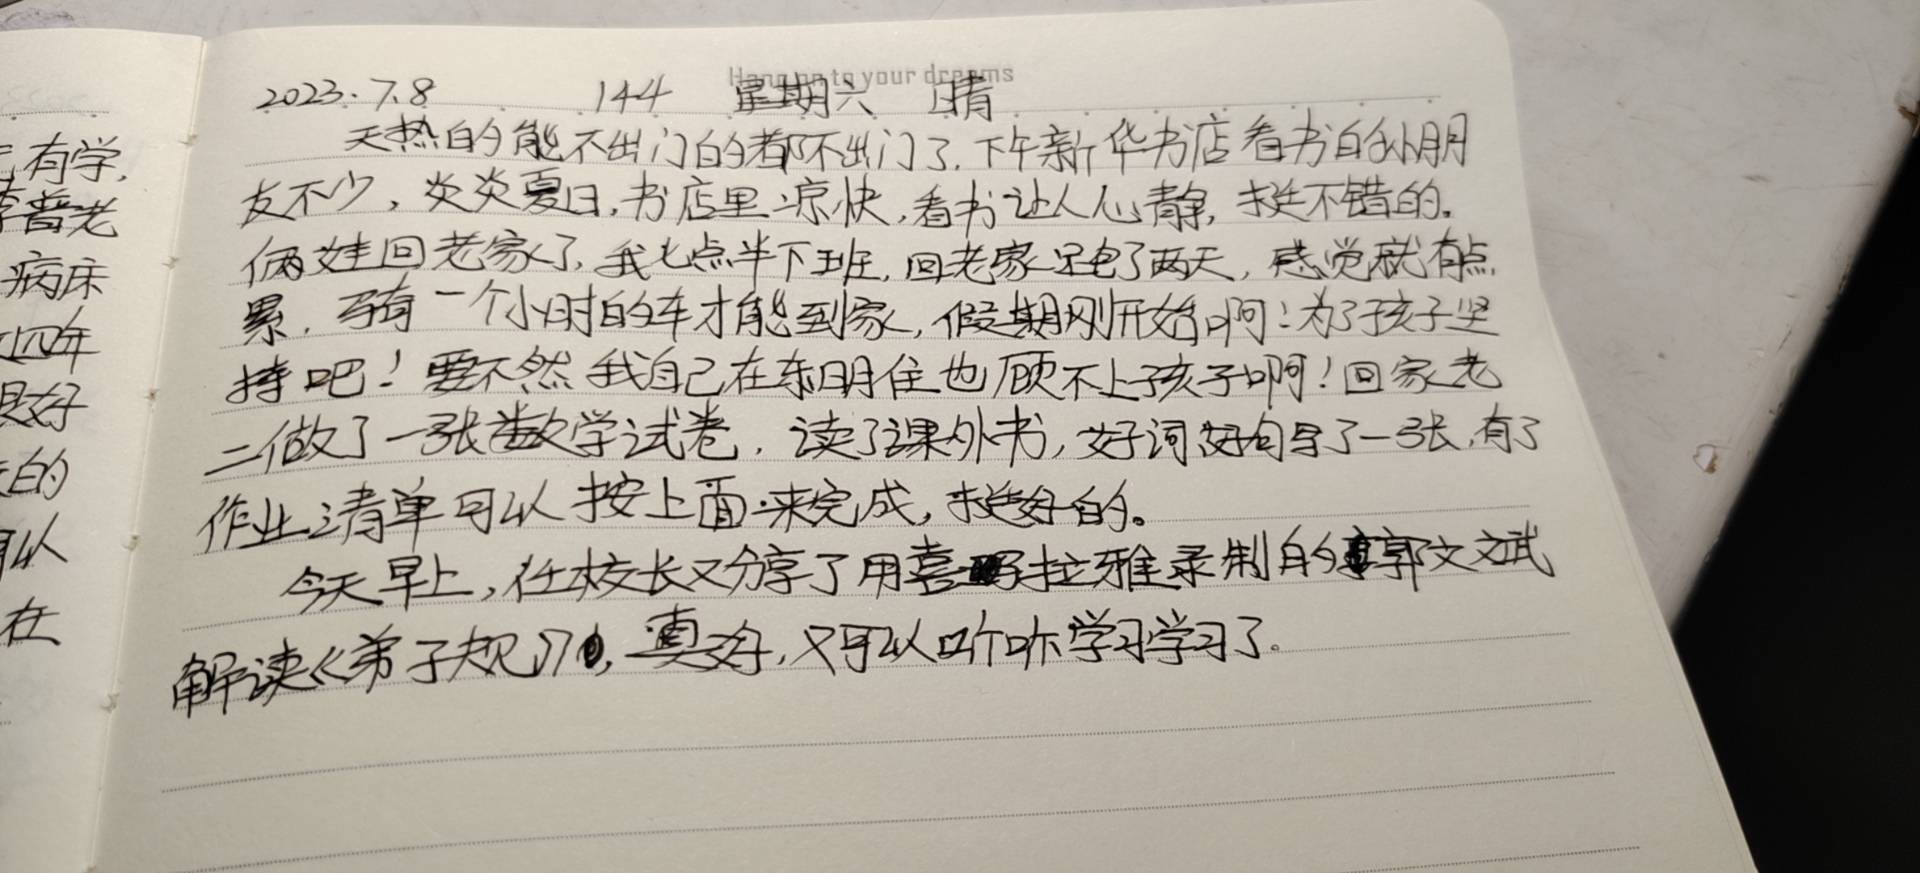 Hang on to your dreams
2023.7.8 144 星期六 晴
天热的能不出门的都不出门了.下午新华书店看书的小朋
友不少,炎炎夏日,书店里凉快,看书让人心静,挺不错的。
俩娃回老家了,我七点半下班,回老家跑了两天,感觉就有点
累.骑有一个小时的车才能到家,假期刚开始啊!为了孩子坚
持吧!要不然我自己在东明住也顾不上孩子啊!回家老
二做了一张数学试卷.读了课外书,好词好句写了一张,有了
作业清单可以按上面来完成,挺好的。
今天早上,任校长又分享了用喜玛拉雅录制的郭文斌
解读《弟子规》,真好,又可以听听学习学习了。
有学,
普老
病床
四年
好
的
以
在